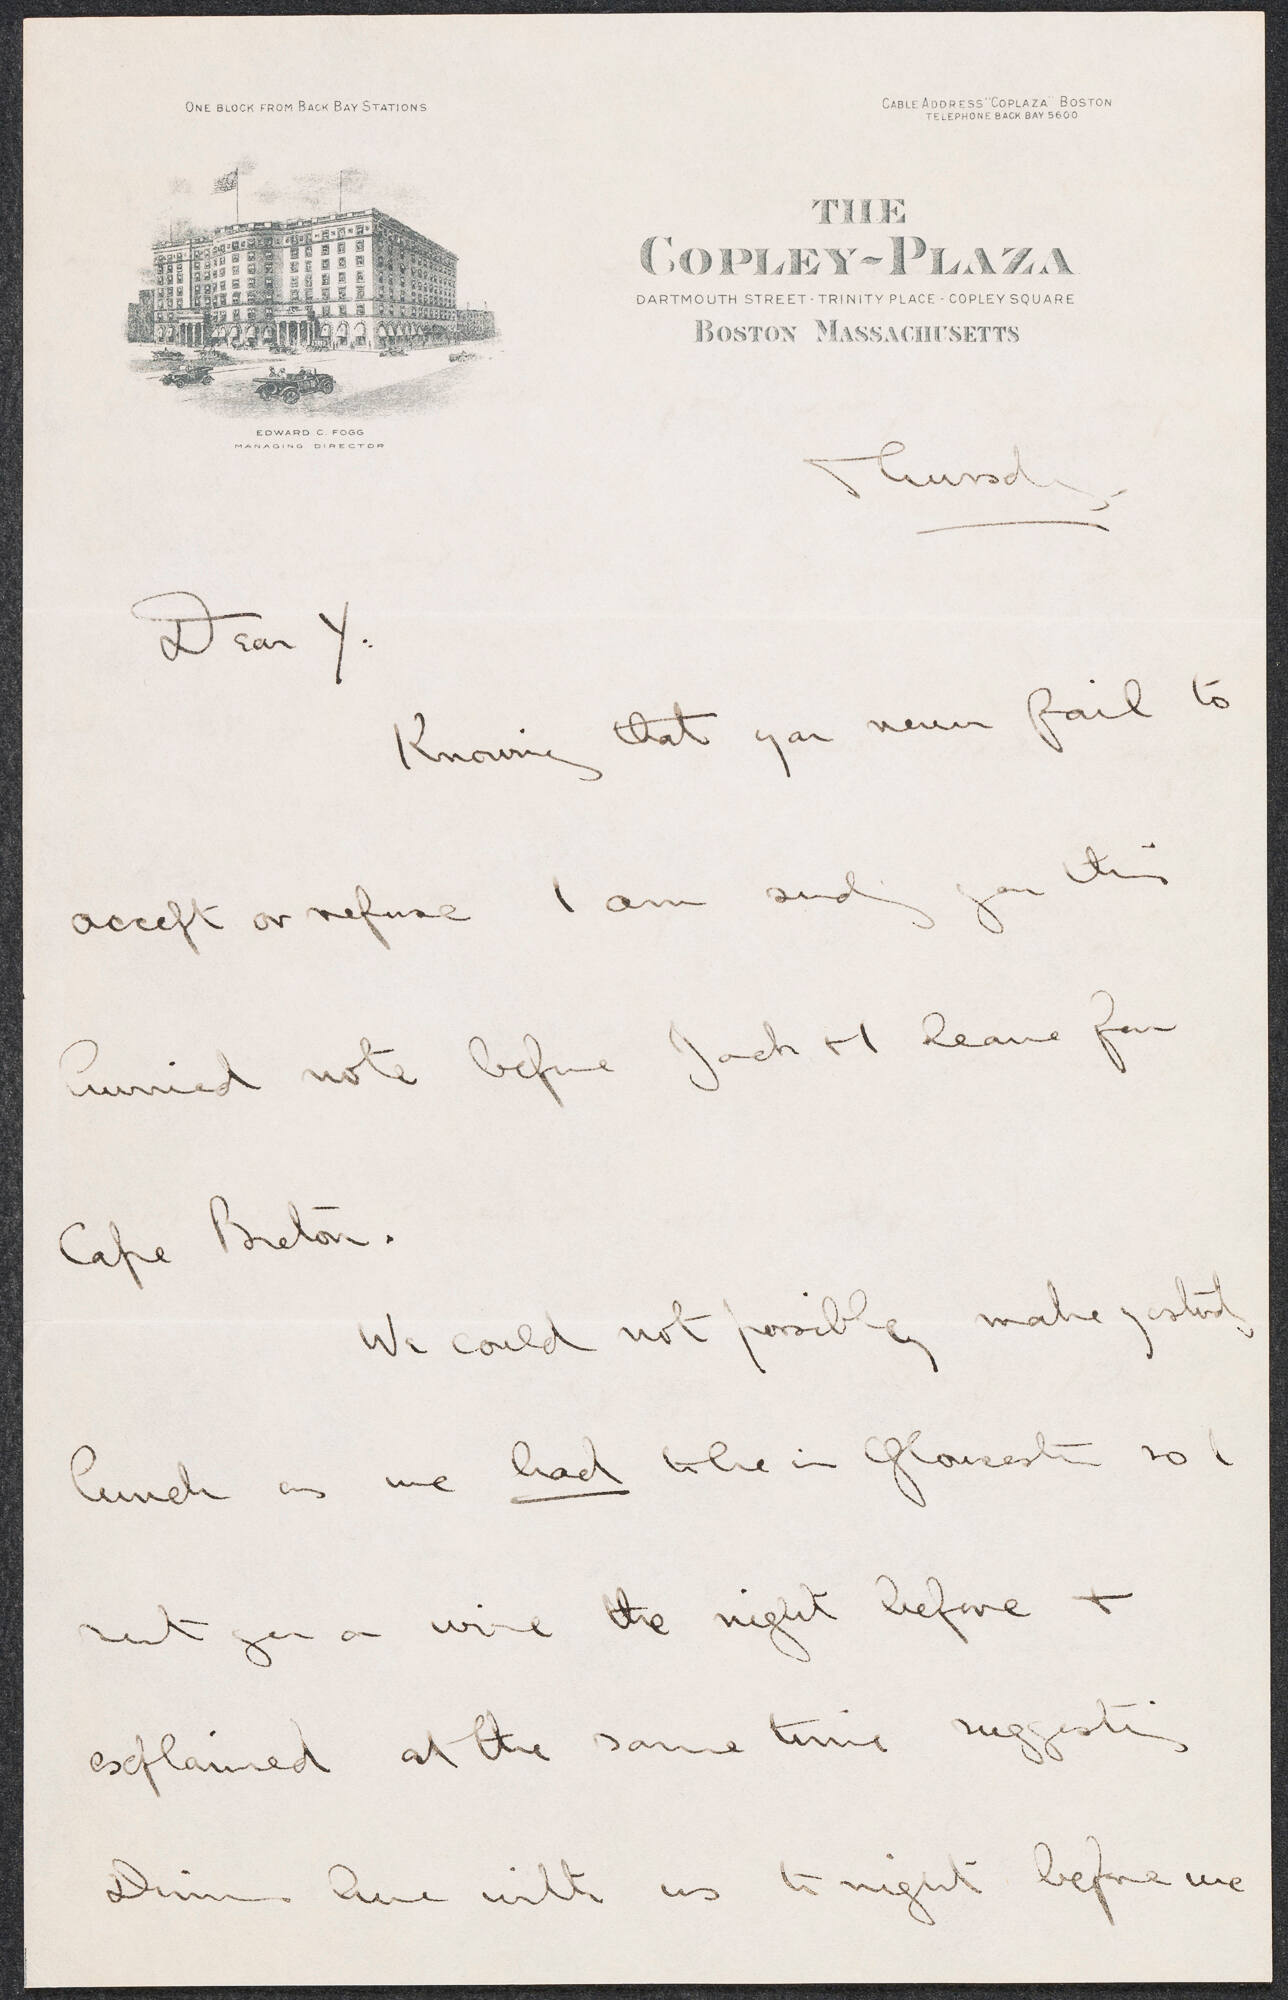 ONE BLOCK FROM BACK BAY STATIONS
CABLE ADDRESS "COPLAZA" BOSTON
TELEPHONE BACK BAY 5600
THE
COPLEY-PLAZA
DARTMOUTH STREET - TRINITY PLACE - COPLEY SQUARE
BOSTON MASSACHUSETTS
EDWARD C. FOGG
MANAGING DIRECTOR
Thursday
Dear Y:
Knowing that you never fail to
accept or refuse I am sending you this
hurried note before Jack + I leave for
Cape Breton.
We could not possibly make yesterday
lunch as we had to be in Gloucester so I
sent you a wire the night before +
explained at the same time suggesting
Dinner here with us to night before we